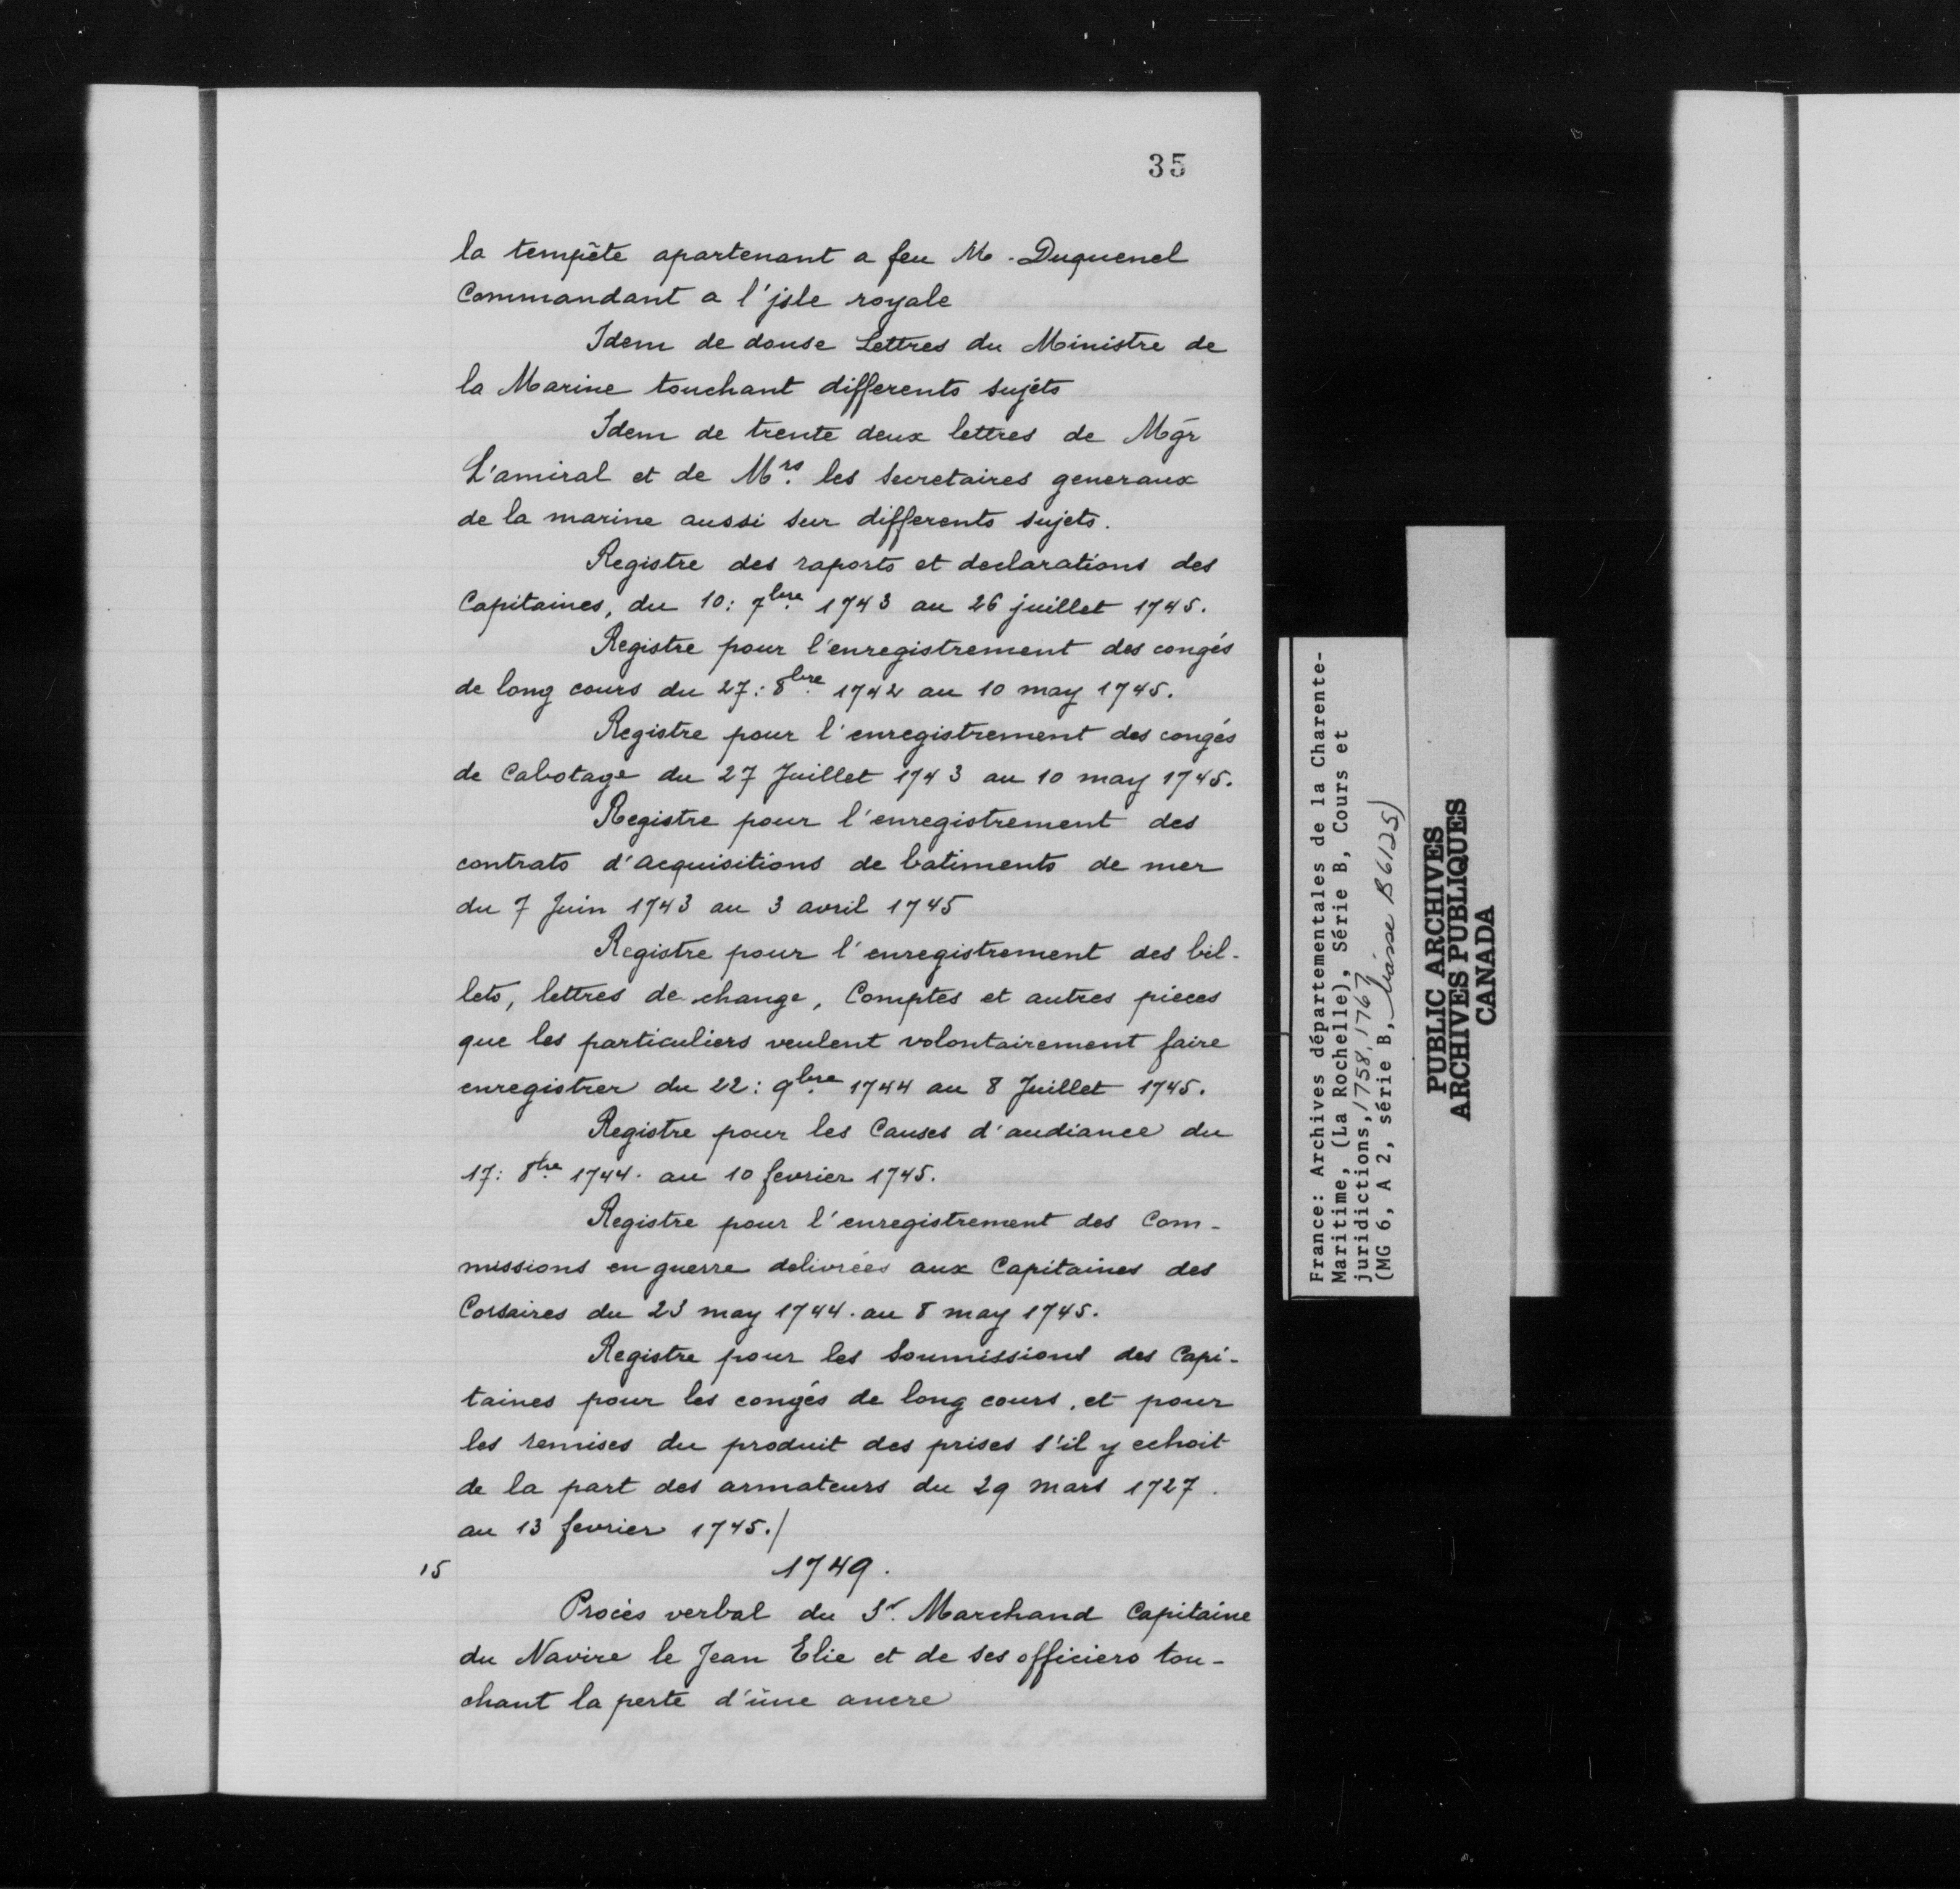 35
la tempête apartenant a feu M. Duquenel
Commandant a l'jsle royale
Idem de douse Lettres du Ministre de
la Marine touchant differents sujéts
Idem de trente deux lettres de Mgr
L'amiral et de Mrs. les secretaires generaux
de la marine aussi sur differents sujets.
Registre des raports et declarations des
Capitaines, du 10: 7bre. 1743 au 26 juillet 1745.
Registre pour l'enregistrement des congés
de long cours du 27: 8bre. 1742 au 10 may 1745.
Registre pour l'enregistrement des congés
de Cabotage du 27 Juillet 1743 au 10 may 1745.
Registre pour l'enregistrement des
contrats d'acquisitions de batiments de mer
du 7 Juin 1743 au 3 avril 1745
Registre pour l'enregistrement des bil-
lets, lettres de change, Comptes et autres pieces
que les particuliers veulent volontairement faire
enregistrer du 22: 9bre. 1744 au 8 Juillet 1745.
Registre pour les Causes d'audiance du
17: 8bre. 1744. au 10 fevrier 1745.
Registre pour l'enregistrement des Com-
missions en guerre delivrées aux Capitaines des
Corsaires du 23 may 1744. au 8 may 1745.
Registre pour les Soumissions des Capi-
taines pour les congés de long cours, et pour
les remises du produit des prises s'il y echoit
de la part des armateurs du 29 mars 1727.
au 13 fevrier 1745./
15 1749.
Procès verbal du Sr. Marchand Capitaine
du Navire le Jean Elie et de ses officiers tou-
chant la perte d'üne ancre
France: Archives départementales de la Charente-
Maritime, (La Rochelle), Série B, Cours et
juridictions, 1758, 1767
(MG 6, A 2, série B, liasse B6125)
PUBLIC ARCHIVES
ARCHIVES PUBLIQUES
CANADA